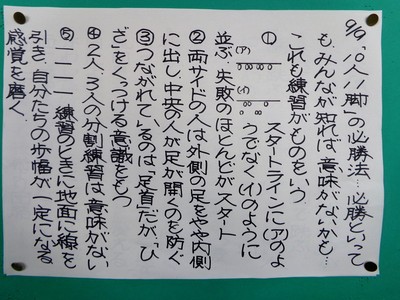 9/9、「10人11脚」の必勝法…必勝といって
も、みんなが知れば意味がないかも…
これも練習がものをいう
① スタートラインに(ア)のよ
うでなく(イ)のように
(ア)
(イ)
並ぶ、失敗のほとんどがスタート
②両サイドの人は外側の足をやや内側
に出し、中央の人が足が開くのを防ぐ
③つながれているのは「足首」だが、「ひ
ざ」をくっつける意識をもつ
④2人、3人の分割練習は意味がない
⑤ーーー 練習のときに地面に線を
引き、自分たちの歩幅が一定になる
感覚を磨く、